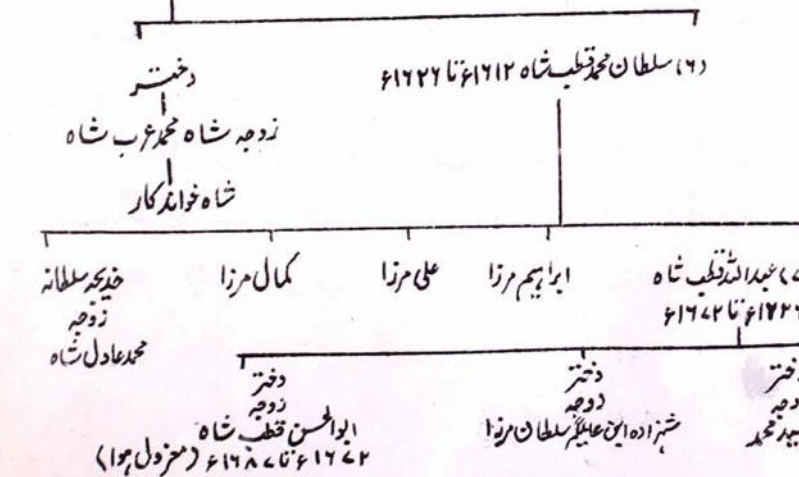 (۶) سلطان محمد قطب شاہ ۱۶۱۲ء تا ۱۶۲۶ء
دختر
زوجہ شاہ محمد عرب شاہ
شاہ خواندکار
عبداللہ قطب شاہ
۱۶۲۶ء تا ۱۶۷۲ء
ابراہیم مرزا
علی مرزا
کمال مرزا
خدیجہ سلطانہ
زوجہ
محمد عادل شاہ
دختر
زوجہ
سید محمد
دختر
زوجہ
شہزادہ ابن عالمگیر سلطان مرزا
دختر
زوجہ
ابوالحسن قطب شاہ
۱۶۷۲ء تا ۱۶۸۷ء (معزول ہوا)